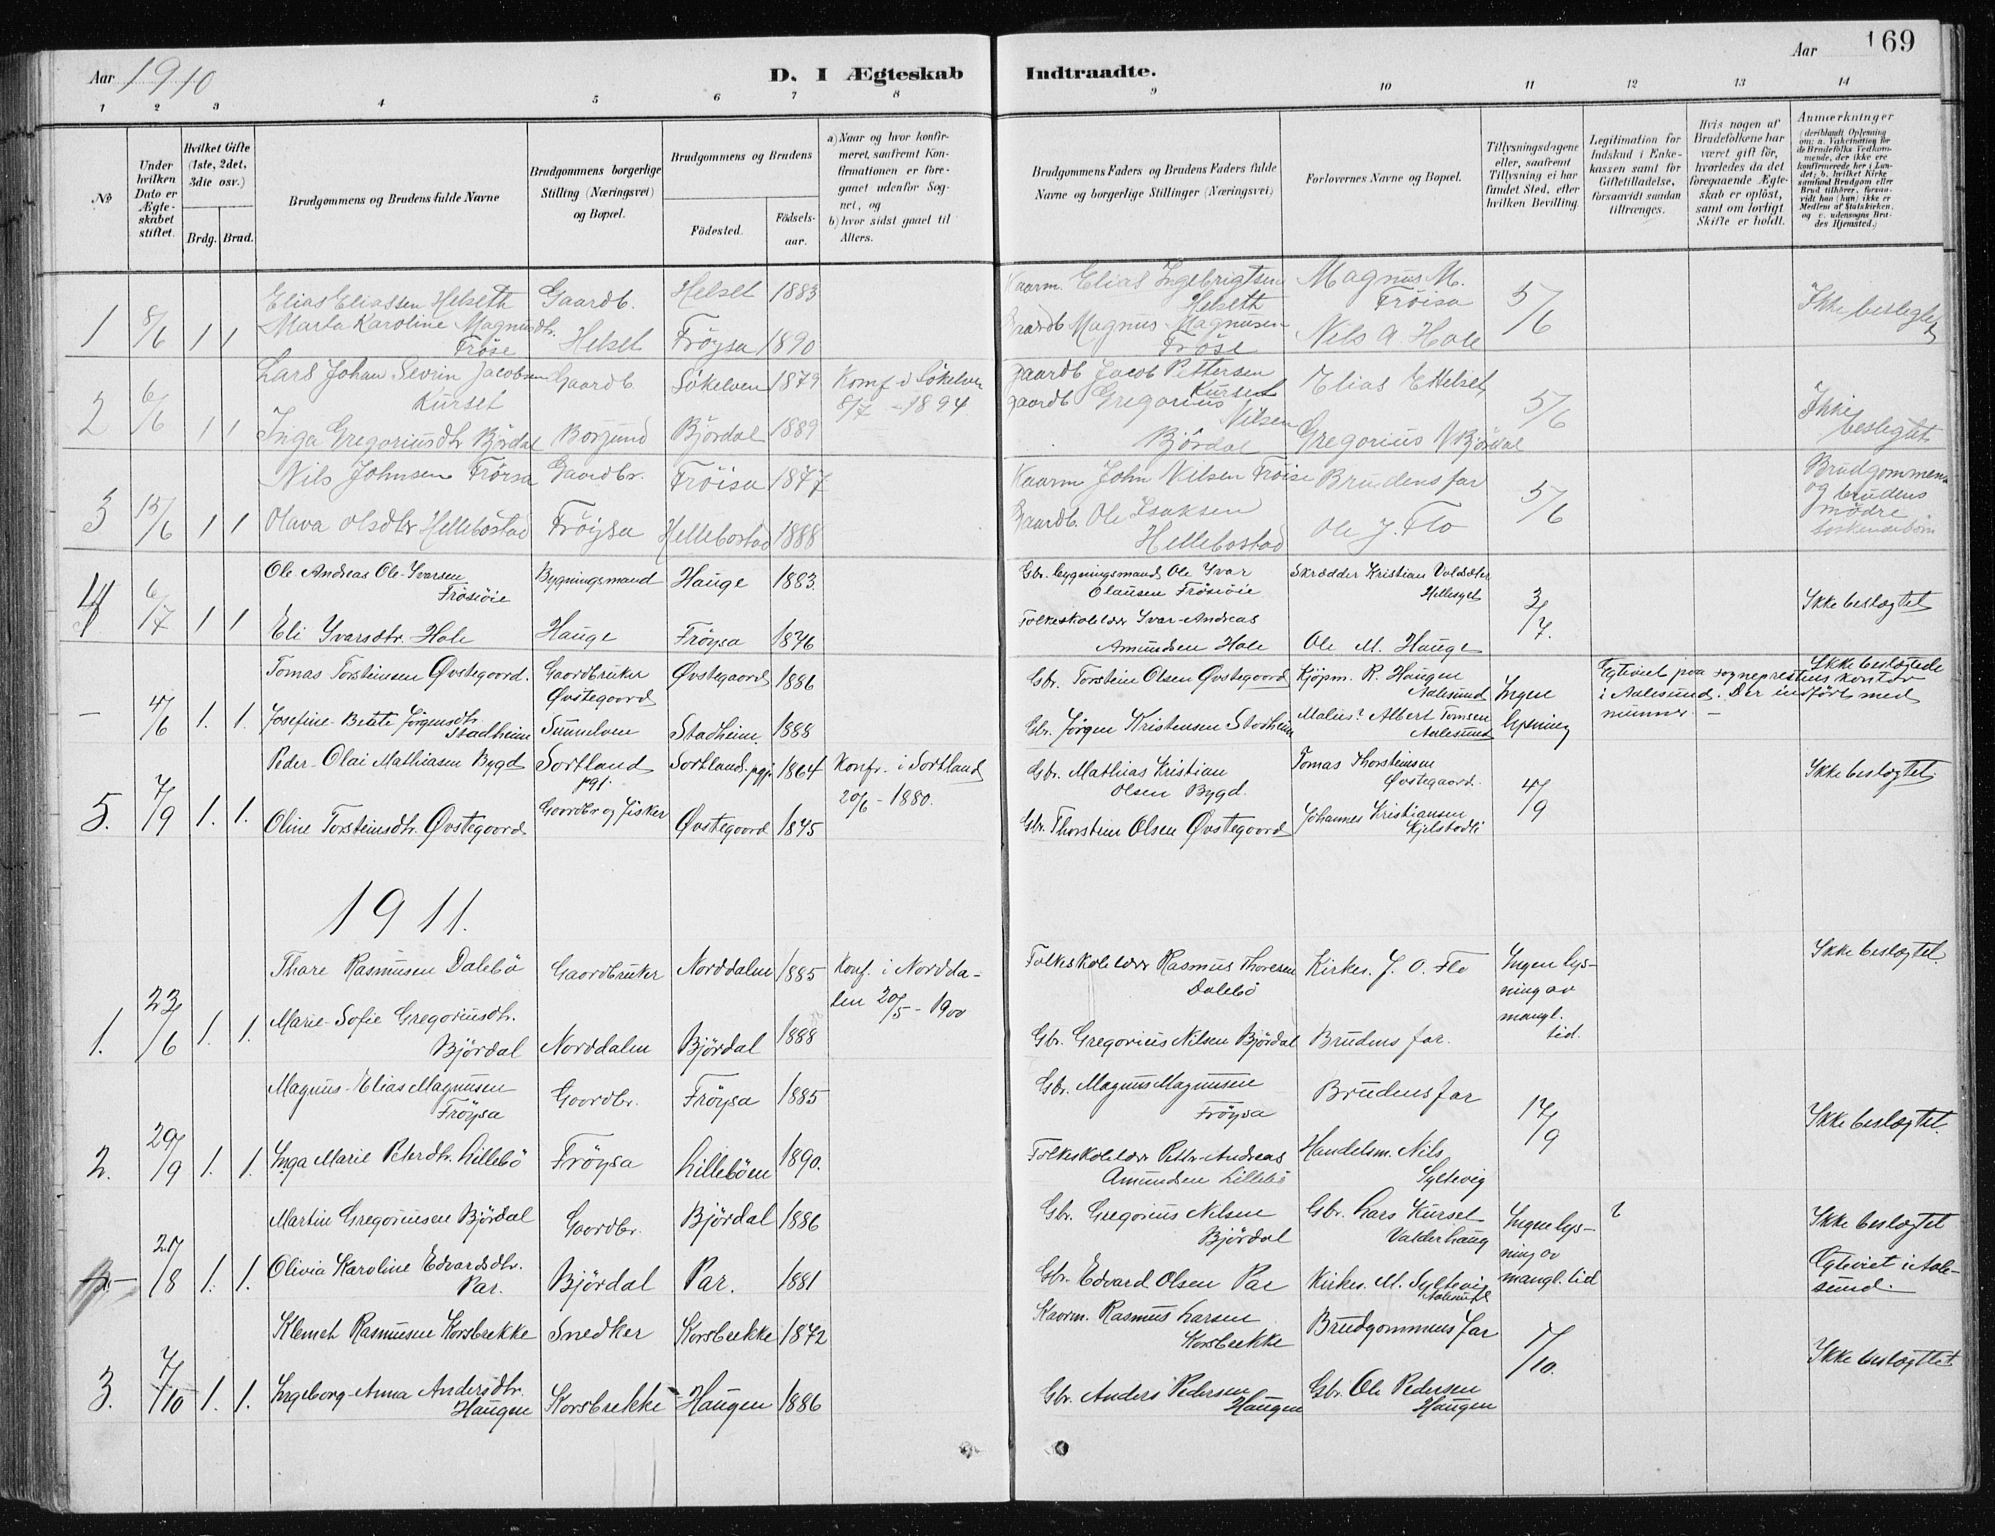 169
Aar 1910
D. I Ægteskab Indtraadte.
Aar
1 2 3 4 5 6 7 8 9 10 11 12 13 14
No
Under hvilken Dato er Ægteskabet stiftet.
Hvilket Gifte (1ste, 2det, 3die osv.)
Brdg. Brud.
Brudgommens og Brudens fulde Navne
Brudgommens borgerlige Stilling (Næringsvei) og Bopæl.
Brudgommens og Brudens
Födested.
Födselsaar.
a) Naar og hvor konfirmeret, saafremt Konfirmationen er foregaaet udenfor Sognet, og
b) hvor sidst gaaet til Alters.
Brudgommens Faders og Brudens Faders fulde Navne og borgerlige Stillinger (Næringsvei)
Forlovernes Navne og Bopæl.
Tillysningsdagene eller, saafremt Tillysning ei har fundet Sted, efter hvilken Bevilling.
Legitimation for Indskud i Enkekassen samt for Giftetilladelse, forsaavidt saadan tiltrænges.
Hvis nogen af Brudefolkene har været gift før, hvorledes da det foregaaende Ægteskab er opløst, samt om lovligt Skifte er holdt.
Anmærkninger
(deriblandt Oplysning om: a. Vakcination for de Brudefolks Vedkommende, der ikke ere konfirmerede her i Landet; b. hvilket Kirkesamfund Brudgom eller Brud tilhörer, forsaavidt han (hun) ikke er Medlem af Statskirken, og c. udensogns Brudes Hjemsted.)
1 8/6 1 1 Elias Eliassen Helseth Gaardb. Helset 1883 Kaarm. Elias Ingebrigtsen Helseth Magnus M. Fröisa 5/6 Ikke beslegtet
Marta Karoline Magnusdtr. Fröse Helset Fröysa 1890 Gaardb Magnus Magnusen Fröse Nils A. Hole
2 6/6 1 1 Lars Johan Sevrin Jacobsen Kurset Gaardb. Sökelven 1879 Komf i Sökelven 8/7 - 1894 gaardb Jacob Pettersen Kurset Elias E Helset 5/6 Ikke beslegtet
Inga Gregoriusdtr Björdal Borgund Björdal 1889 gaardb Gregorius Nilsen Björdal Gregorius N Björdal
3 15/6 1 1 Nils Johnsen Fröisa Gaardbr. Fröisa 1877 Kaarm John Nilsen Fröise Brudens far 5/6 Brudgommens og brudens mödre söskendebörn
Olava Olsdtr Hellebostad Fröysa Hellebostad 1888 Gaardb. Ole Isaksen Hellebostad Ole J. Flo
4 6/7 1 1 Ole Andreas Ole-Ivarsen Frösöie Bygningsmand Hauge 1883. Gbr. bygningsmand Ole Ivar Olausen Frösöie Skrædder Kristian Voldsæter Hellesyet 3/7. Ikke beslægtet
Eli Ivarsdtr. Hole Hauge Fröysa 1876 Folkeskolelær Ivar-Andreas Amundsen Hole Ole M. Hauge
- 4/6 1. 1. Tomas Torsteinsen Øvstegaord. Gaordbruker Øvstegaord Øvstegaord 1886 Gbr. Torstein Olsen Øvstegaord Kjöpm. R. Haugen Aalesund Ingen lysning Egteviet paa sogneprestens kontor i Aalesund. Der indfört med nummer. - Ikke beslægtede
Josefine-Betzte Jørgensdtr. Stadheim Sunnelven Stadheim. 1888 Gbr. Jørgen Kristensen Stadheim Malius? Albert Tomsen Aalesund
5. 7/9 1. 1. Peder-Olai Mathiasen Bygd Sortland pgj. Sortland pgj. 1864 Konfr. i Sortland 20/6 - 1880. Gbr. Mathias Kristian Olsen Bygd. Tomas Thorsteinsen Øvstegaord. 4/9 Ikke beslægtet
Oline Torsteinsdtr. Øvstegaord Gaordbr og fisker Øvstegaord 1875 Gbr. Thorstein Olsen Øvstegaord Johannes Kristiansen Kjelstadli
1911.
1. 23/6 1. 1. Thore Rasmusen Dalebö Gaordbruker Norddalen 1885 Konf. i Norddalen 20/5 - 1900 Folkeskolelær Rasmus Thoresen Dalebö Kirkes. J. O. Flo Ingen lysning av mangl. tid. Ikke beslægtet.
Marie-Sofie Gregoriusdtr. Björdal Norddalen Björdal 1888 Gbr. Gregorius Nilsen Björdal Brudens far.
2. 29/9 1. 1. Magnus-Elias Magnusen Fröysa Gaordbr. Fröysa 1885 Gbr. Magnus Magnusen Fröysa Brudens far 17/9 Ikke beslægtet.
Inga Marie Petersdtr. Lillebö Fröysa Lilleböen 1890. Folkeskolelær Petter-Andreas Amundsen Lillebö Handelsm. Nils Syltevig
21/8 1. 1. Martin Gregoriusen Björdal Gaordbr. Björdal 1886 Gbr. Gregorius Nilsen Björdal Gbr. Lars Kurset Valderhaug Ingen lysning av mangl. tid Ikke beslægtet
Olivia Karoline Edvardsdtr. Par. Björdal Par. 1881 Gbr. Edvard Olsen Par Kirkes. M. Syltevig Aalesund Egteviet i Aalesund.
3. 7/10 1. 1. Klemet Rasmusen Korsbrekke Snedker Korsbrekke 1872 Kaorm. Rasmus Larsen Korsbrekke Brudgommens far 1/10. Ikke beslægtet
Ingeborg-Anna Andersdtr. Haugen Korsbrekke Haugen 1886 Gbr. Anders Pedersen Haugen Gbr. Ole Pedersen Haugen